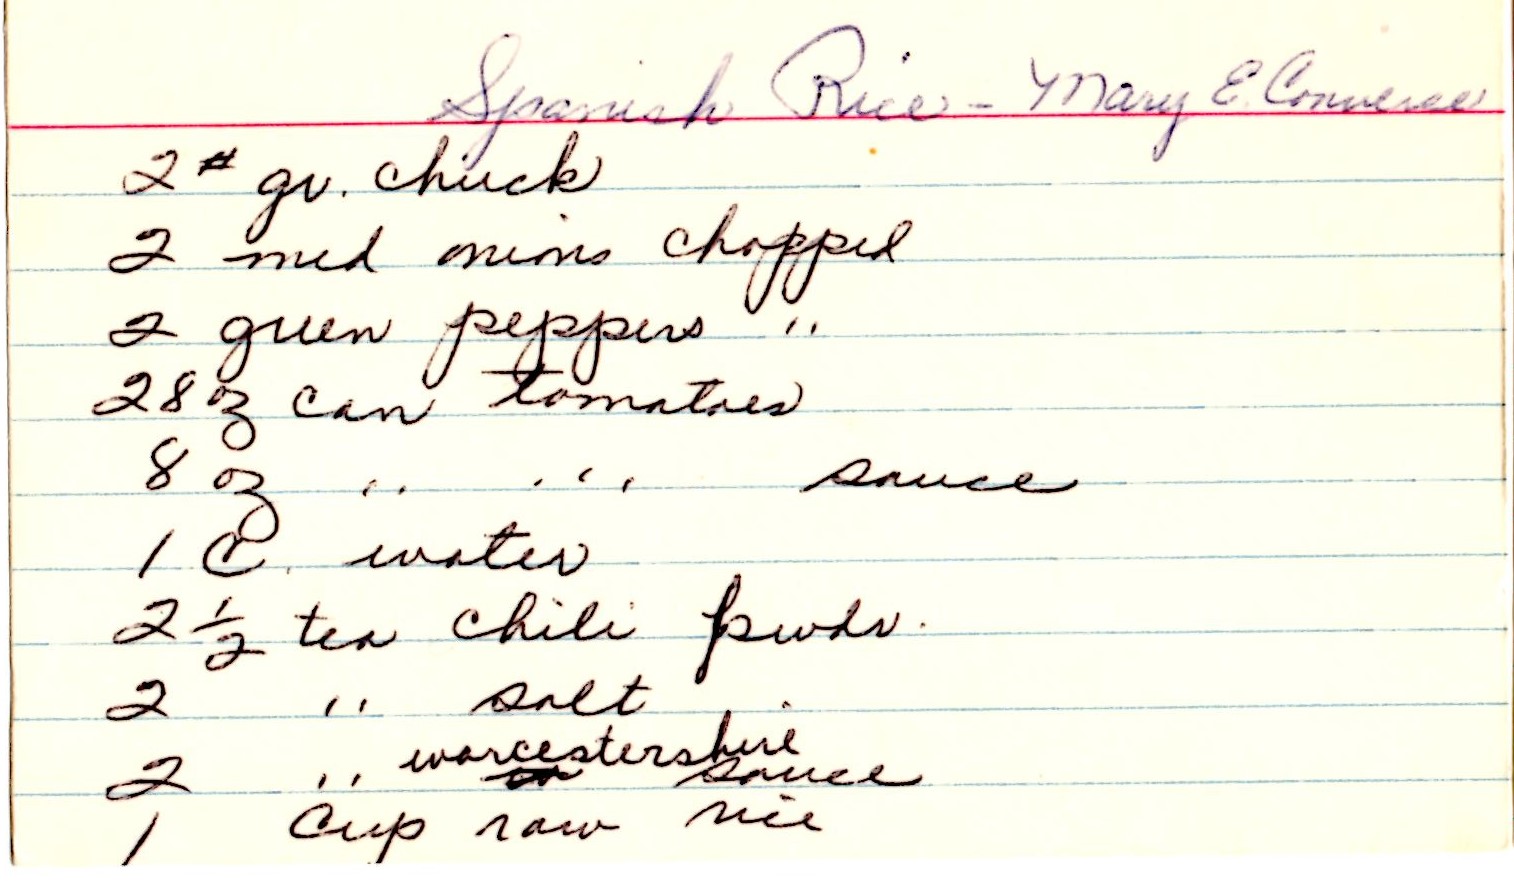 Spanish Rice - Mary E. Converse
2# gr. chuck
2 med onions chopped
2 green peppers "
28 oz can tomatoes
8 oz " " sauce
1 C. water
2 1/2 tea chili pwdr.
2 " salt
2 " worcestershire sauce
1 cup raw rice